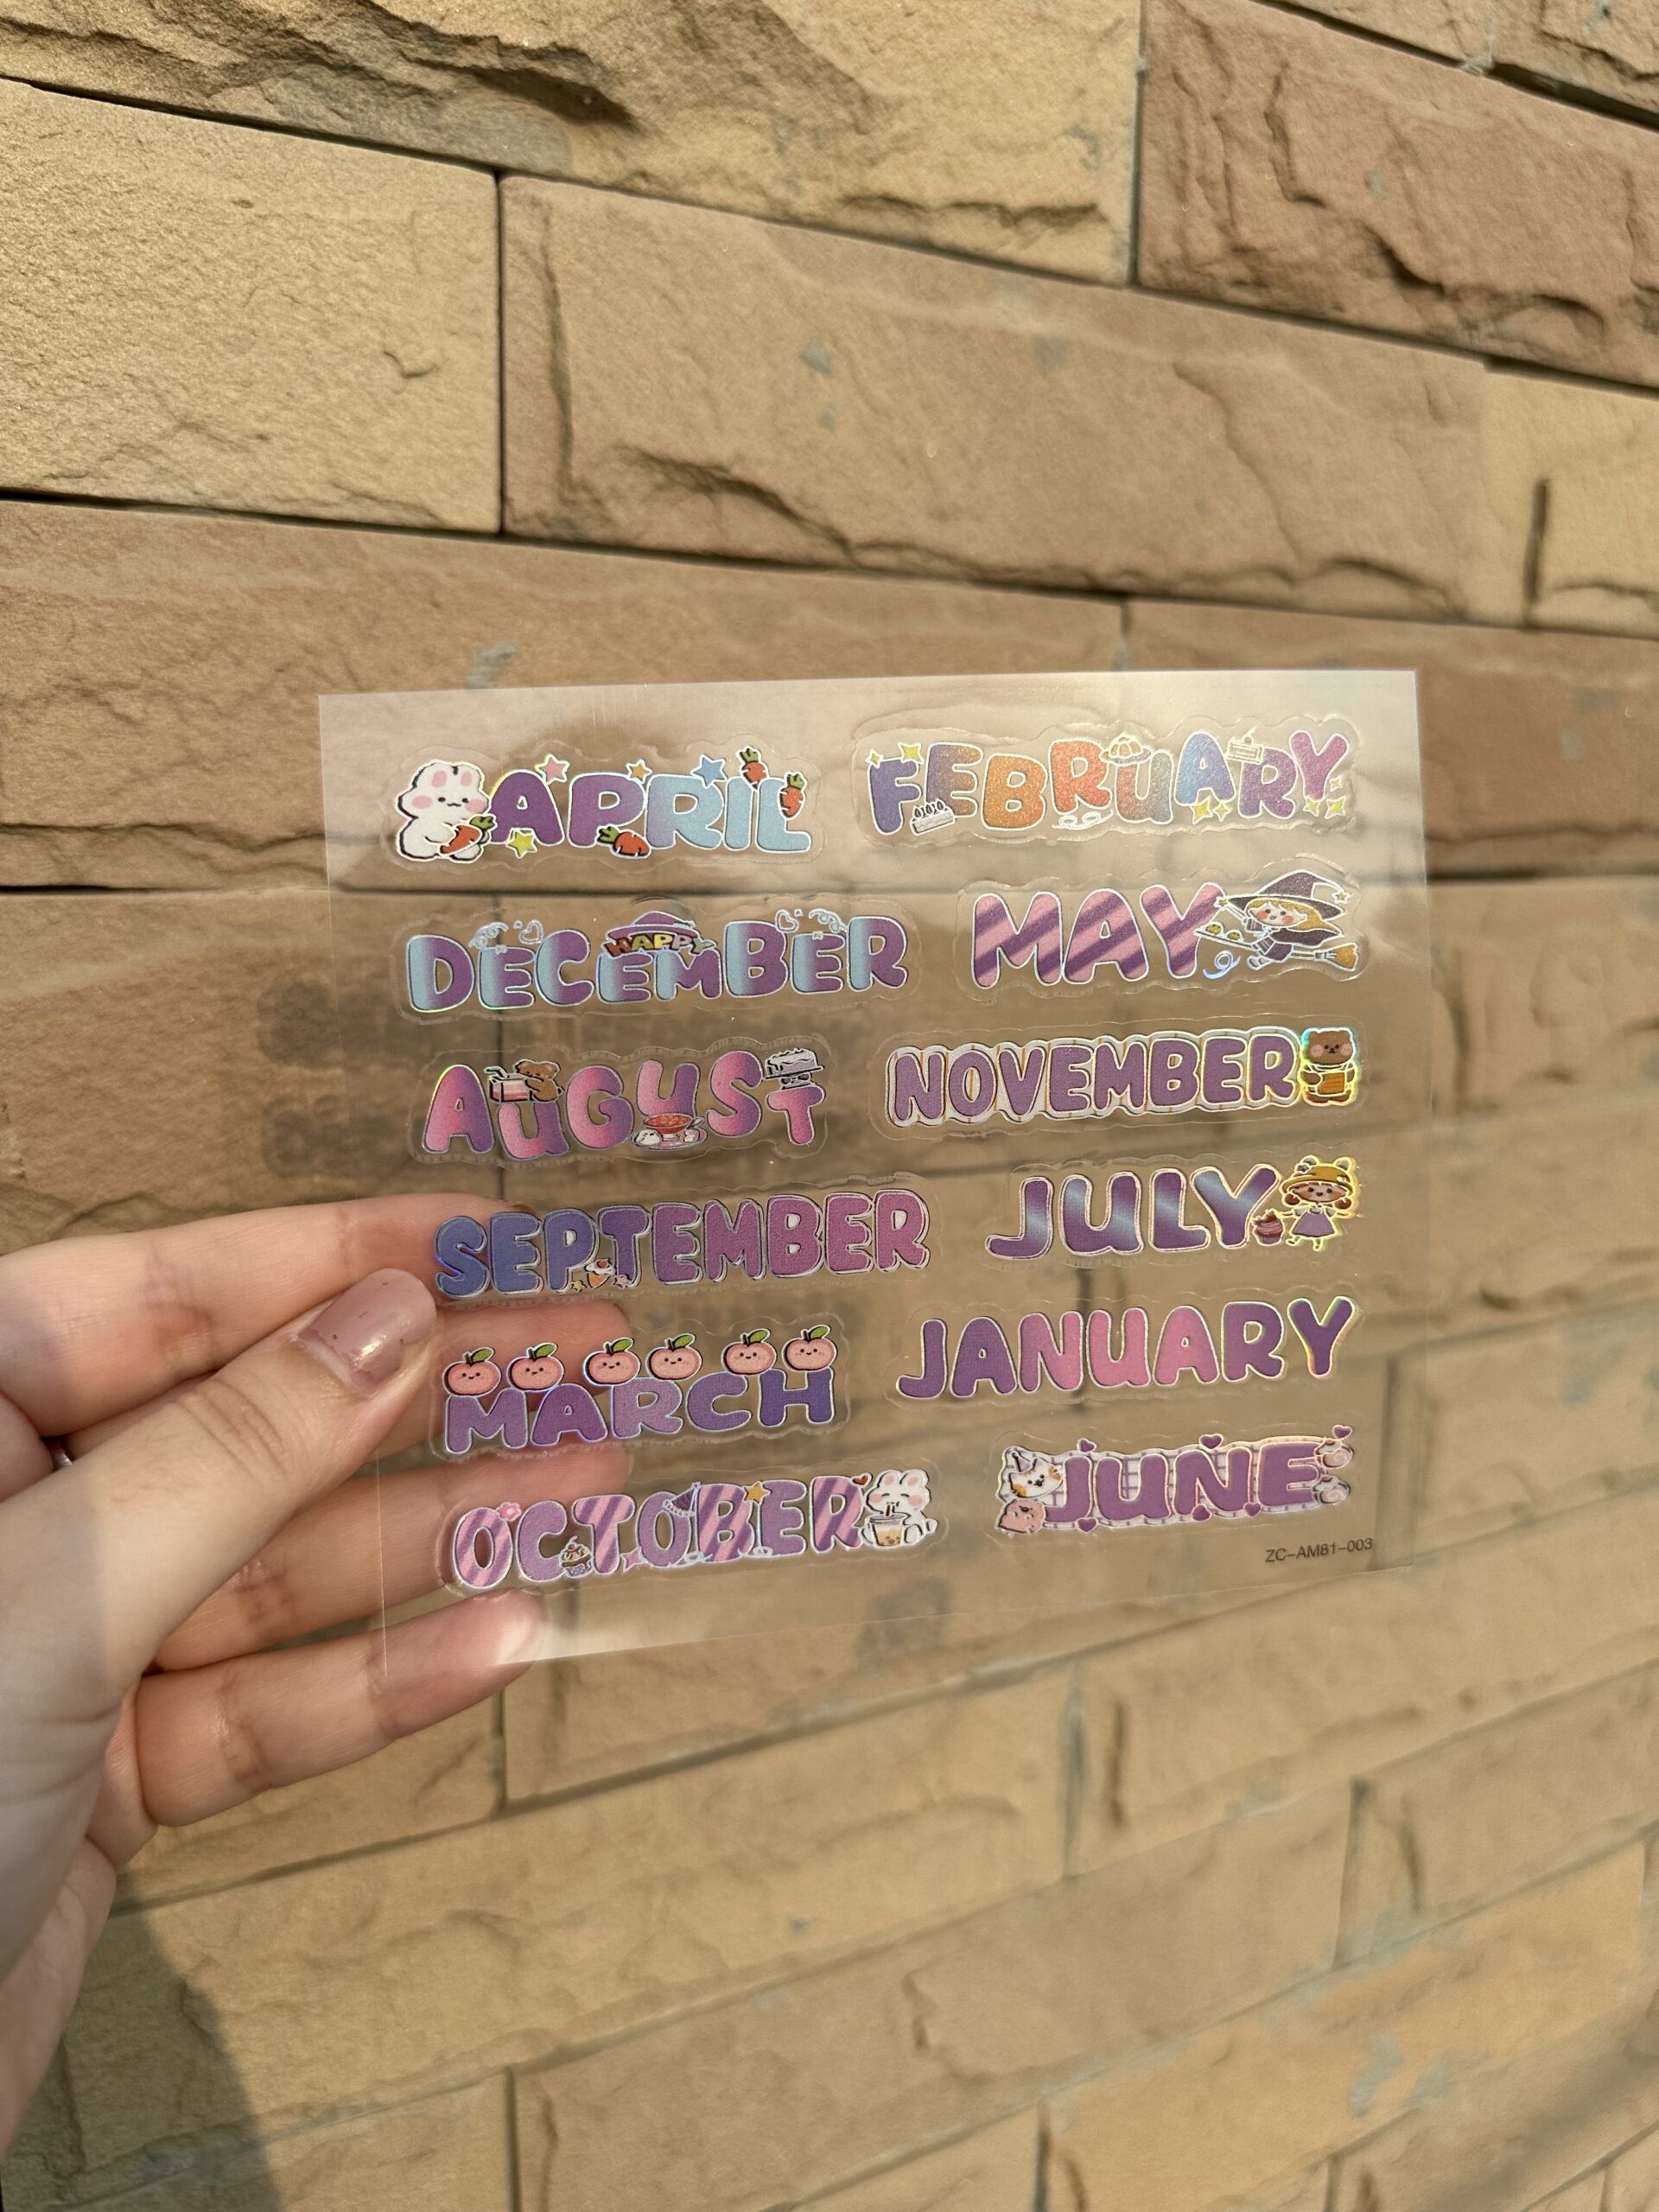 APRIL FEBRUARY
DECEMBER HAPPY MAY
AUGUST NOVEMBER
SEPTEMBER JULY
MARCH JANUARY
OCTOBER JUNE
ZC-AM81-003